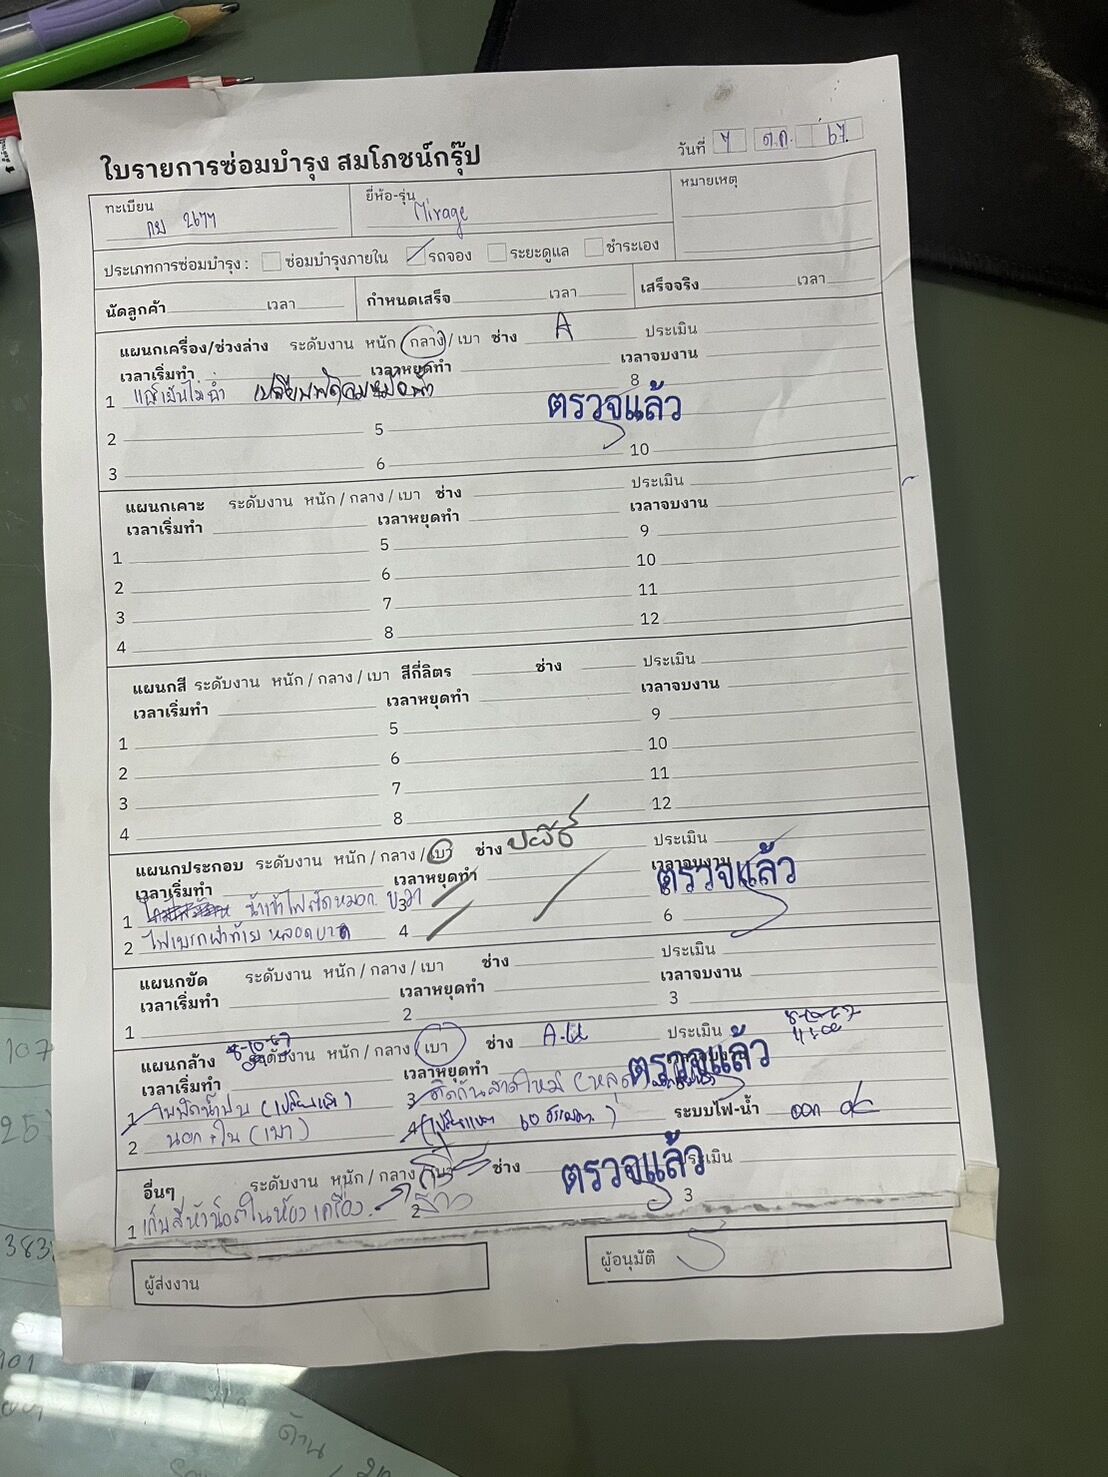 ใบรายการซ่อมบำรุง สมโภชน์กรุ๊ป
วันที่ 7 ต.ค. 67.
ทะเบียน กบ 2677
ยี่ห้อ-รุ่น Mirage
หมายเหตุ
ประเภทการซ่อมบำรุง : ซ่อมบำรุงภายใน รถจอง ระยะดูแล ชำระเอง
นัดลูกค้า เวลา กำหนดเสร็จ เวลา เสร็จจริง เวลา
แผนกเครื่อง/ช่วงล่าง ระดับงาน หนัก / กลาง / เบา ช่าง A ประเมิน
เวลาเริ่มทำ เวลาหยุดทำ เวลาจบงาน
1 แอร์เย็นไม่ฉ่ำ เปลี่ยนพัดลมหม้อน้ำ 8
ตรวจแล้ว
2 5
3 6 10
แผนกเคาะ ระดับงาน หนัก / กลาง / เบา ช่าง ประเมิน
เวลาเริ่มทำ เวลาหยุดทำ เวลาจบงาน
1 5 9
2 6 10
3 7 11
4 8 12
แผนกสี ระดับงาน หนัก / กลาง / เบา สีกี่ลิตร ช่าง ประเมิน
เวลาเริ่มทำ เวลาหยุดทำ เวลาจบงาน
1 5 9
2 6 10
3 7 11
4 8 12
แผนกประกอบ ระดับงาน หนัก / กลาง / เบา ช่าง ประเมิน
เวลาเริ่มทำ เวลาหยุดทำ เวลาจบงาน
ตรวจแล้ว
1 น้ำเข้าไฟตัดหมอก ขวา 3
2 ไฟเบรกฝาท้าย หลอดขาด 4 6
แผนกขัด ระดับงาน หนัก / กลาง / เบา ช่าง ประเมิน
เวลาเริ่มทำ เวลาหยุดทำ เวลาจบงาน
1 2 3
แผนกล้าง 8-10-67 ระดับงาน หนัก / กลาง / เบา ช่าง ประเมิน 8-10-67
เวลาเริ่มทำ เวลาหยุดทำ เวลาจบงาน
ตรวจแล้ว
1 ใบปัดน้ำฝน 3
2 นอก + ใน (เบา) 4 ระบบไฟ-น้ำ
อื่นๆ ระดับงาน หนัก / กลาง / เบา ช่าง ประเมิน
ตรวจแล้ว
1 เก็บสีหัวน็อตในห้องเครื่อง 2 3
ผู้ส่งงาน
ผู้อนุมัติ
107
383
101
ด้าน